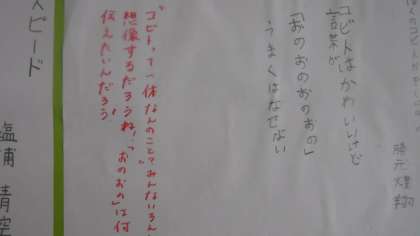 勝元煌翔
コビトはかわいいけど
言葉が
「おのおのおのおの」
うまくはなせない
"コビト"って一体なんのこと？みんないろん
想像するだろうね。"おのおの"は何
伝えたいんだろう
スピード
塩浦 青空